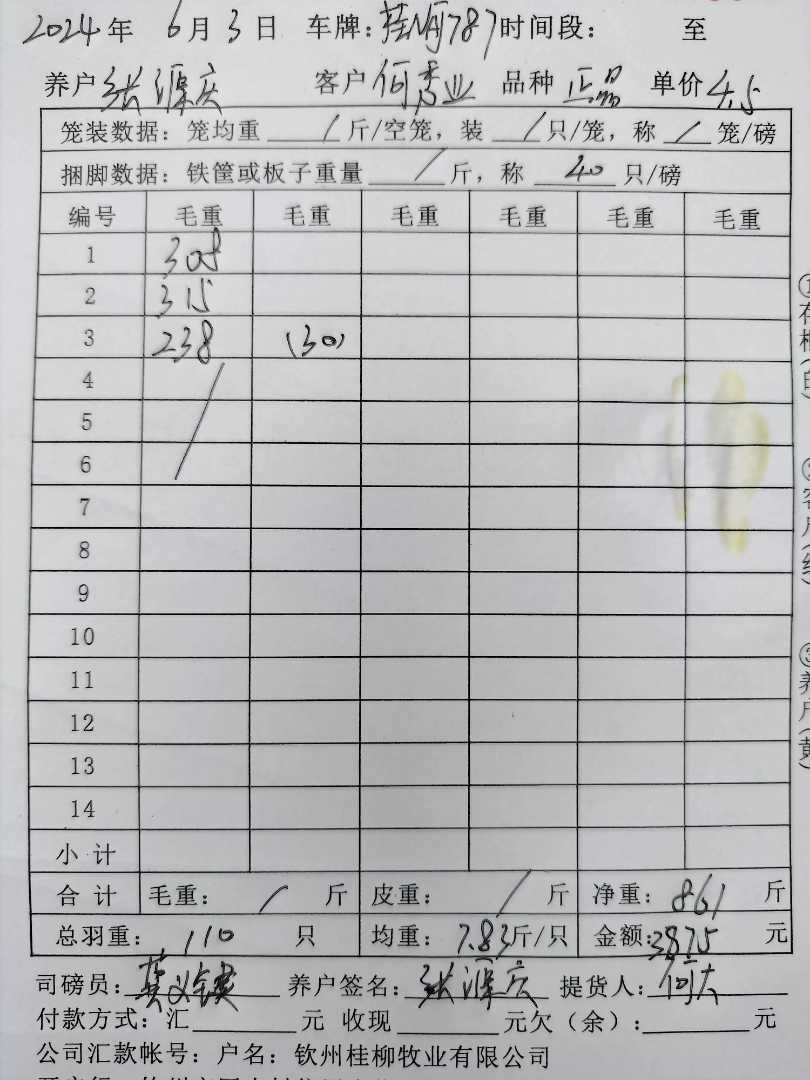 2024年 6月3日 车牌:桂N 787时间段: 至
养户 张 庆 客户 何秀业 品种 正品 单价 4.5
笼装数据: 笼均重 / 斤/空笼, 装 / 只/笼, 称 / 笼/磅
捆脚数据: 铁筐或板子重量 / 斤, 称 40 只/磅
编号 毛重 毛重 毛重 毛重 毛重 毛重
1 308
2 315
3 238 (30)
4
5
6
7
8
9
10
11
12
13
14
小计
合计 毛重: / 斤 皮重: / 斤 净重: 861 斤
总羽重: 110 只 均重: 7.83斤/只 金额:3875 元
司磅员: 养户签名: 张 庆 提货人: 何
付款方式: 汇 元 收现 元欠(余): 元
公司汇款帐号: 户名: 钦州桂柳牧业有限公司